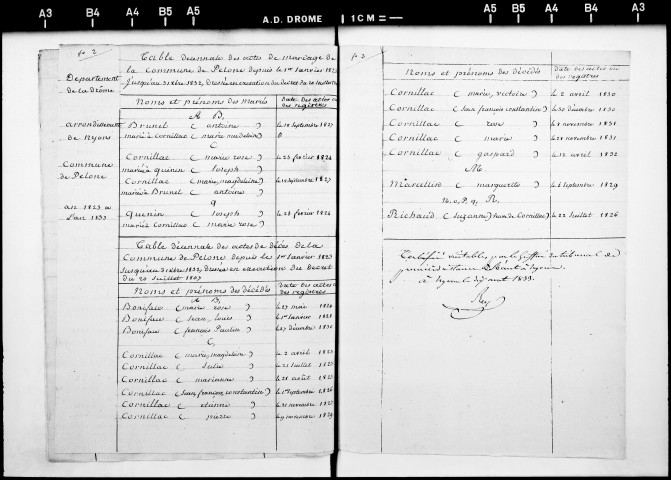 A3 B4 A4 B5 A5 A.D. DROME 1 CM = A5 B5 A4 B4 A3
fo. 2
Departement
de la Drôme
arrondissement
de Nyons
Commune
de Pelone
an 1823 a
L'an 1833
Table décennale des actes de mariage de
la commune de Pelone depuis le 1er Janvier
Jusqu'au 31 xbre 1832, Dressée en execution du decret du 20 Juillet
Noms et prénoms des Mariés Date des actes ou des registres
A B,
Brunel ( antoine ) le 10 Septembre 1827
mariè à Cornillac ( marie magdelaine )
C
Cornillac ( marie rose ) le 25 fevrier 1824
mariée à quenin ( Joseph )
Cornillac ( marie, magdelaine ) le 10 septembre 1827
mariée à Brunel ( antoine )
q
Quenin ( Joseph ) le 25 fevrier 1824
marié à Cornillac ( marie rose )
Table décennale des actes de décès de la
Commune de Pelone depuis le 1er Janvier 1823
Jusqu'au 31 xbre 1832, dressée en execution du Decret
du 20 Juillet 1807
Noms et prénoms des décédés Date des actes des registres
A B,
Boniface ( marie rose ) le 27 mai
Boniface ( Jean, Louis ) le 1er Janvier 1828
Boniface ( françois Paulin ) le 27 décembre 1830
C,
Cornillac ( marie, magdelaine ) le 2 avril 1823
Cornillac ( Julie ) le 21 Juillet
Cornillac ( marianne ) le 28 août
Cornillac ( Jean françois constantin ) le 1er Septembre 1826
Cornillac ( etienne ) novembre 1827
Cornillac ( pierre ) le 9 novembre 1829
fo. 3
Noms et prénoms des décédés Date des actes ou des registres
Cornillac ( marie, victoire ) le 2 avril 1830
Cornillac ( Jean françois constantin ) le 30 décembre 1830
Cornillac ( rose ) le 8 novembre 1831
Cornillac ( marie ) le 28 novembre 1831
Cornillac ( gaspard ) le 18 avril 1832
M.
Marcellin ( marguerite ) le 6 Septembre 1829
N. O. P. q, R.
Richaud ( Suzanne ) veuve de Cornillac le 22 Juillet 1826
Certifié véritable, par le greffier du tribunal de
première instance séant à Nyons.
à Nyons le août 1833.